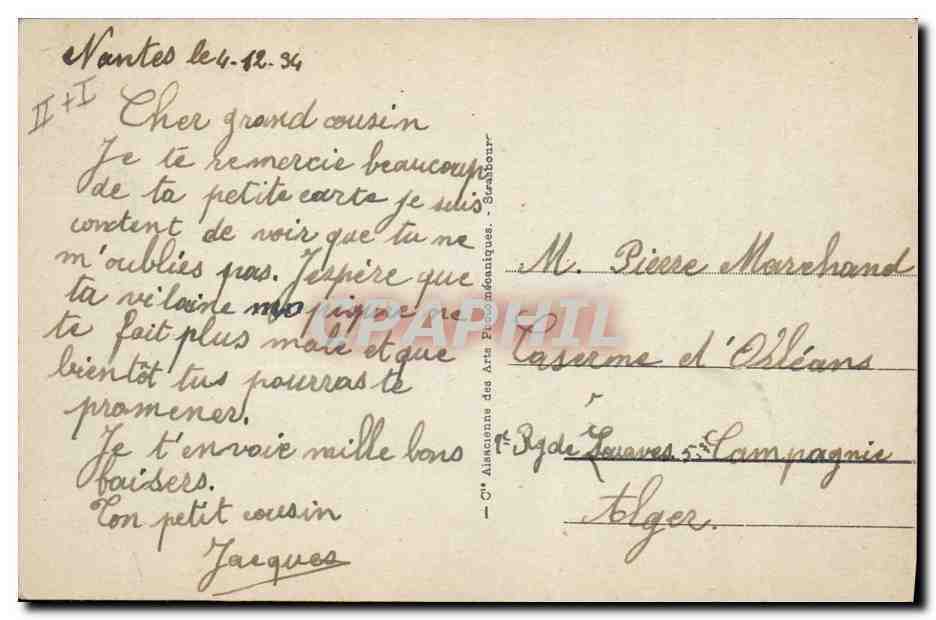 Nantes le 4-12-34
II + I
Cher grand cousin
Je te remercie beaucoup
de ta petite carte je suis
content de voir que tu ne
m'oublies pas. J'espère que
ta vilaine piqure ne
te fait plus male et que
bientôt tus pourras te
promener.
Je t'envoie mille bons
baisers.
Ton petit cousin
Jacques
— Cie Alsacienne des Arts Photomécaniques. - Strasbourg
M. Pierre Marchand
Caserne d'Orléans
Rg de Zouaves 5e Compagnie
Alger.
CPAPHIL